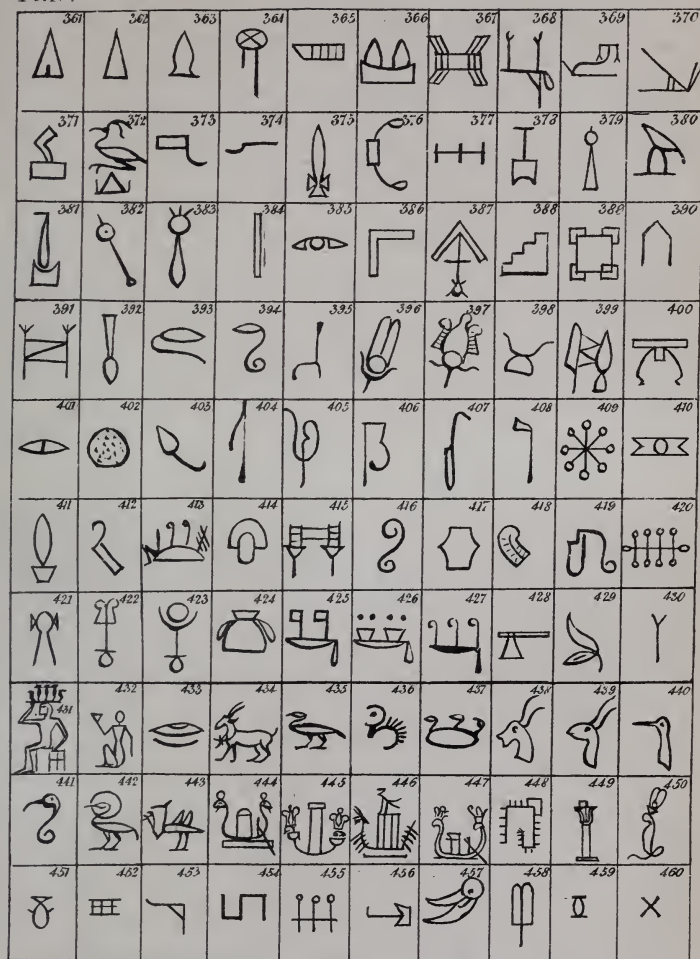 361 362 363 364 365 366 367 368 369 370
371 372 373 374 375 376 377 378 379 380
381 382 383 384 385 386 387 388 389 390
391 392 393 394 395 396 397 398 399 400
401 402 403 404 405 406 407 408 409 410
411 412 413 414 415 416 417 418 419 420
421 422 423 424 425 426 427 428 429 430
431 432 433 434 435 436 437 438 439 440
441 442 443 444 445 446 447 448 449 450
451 452 453 454 455 456 457 458 459 460